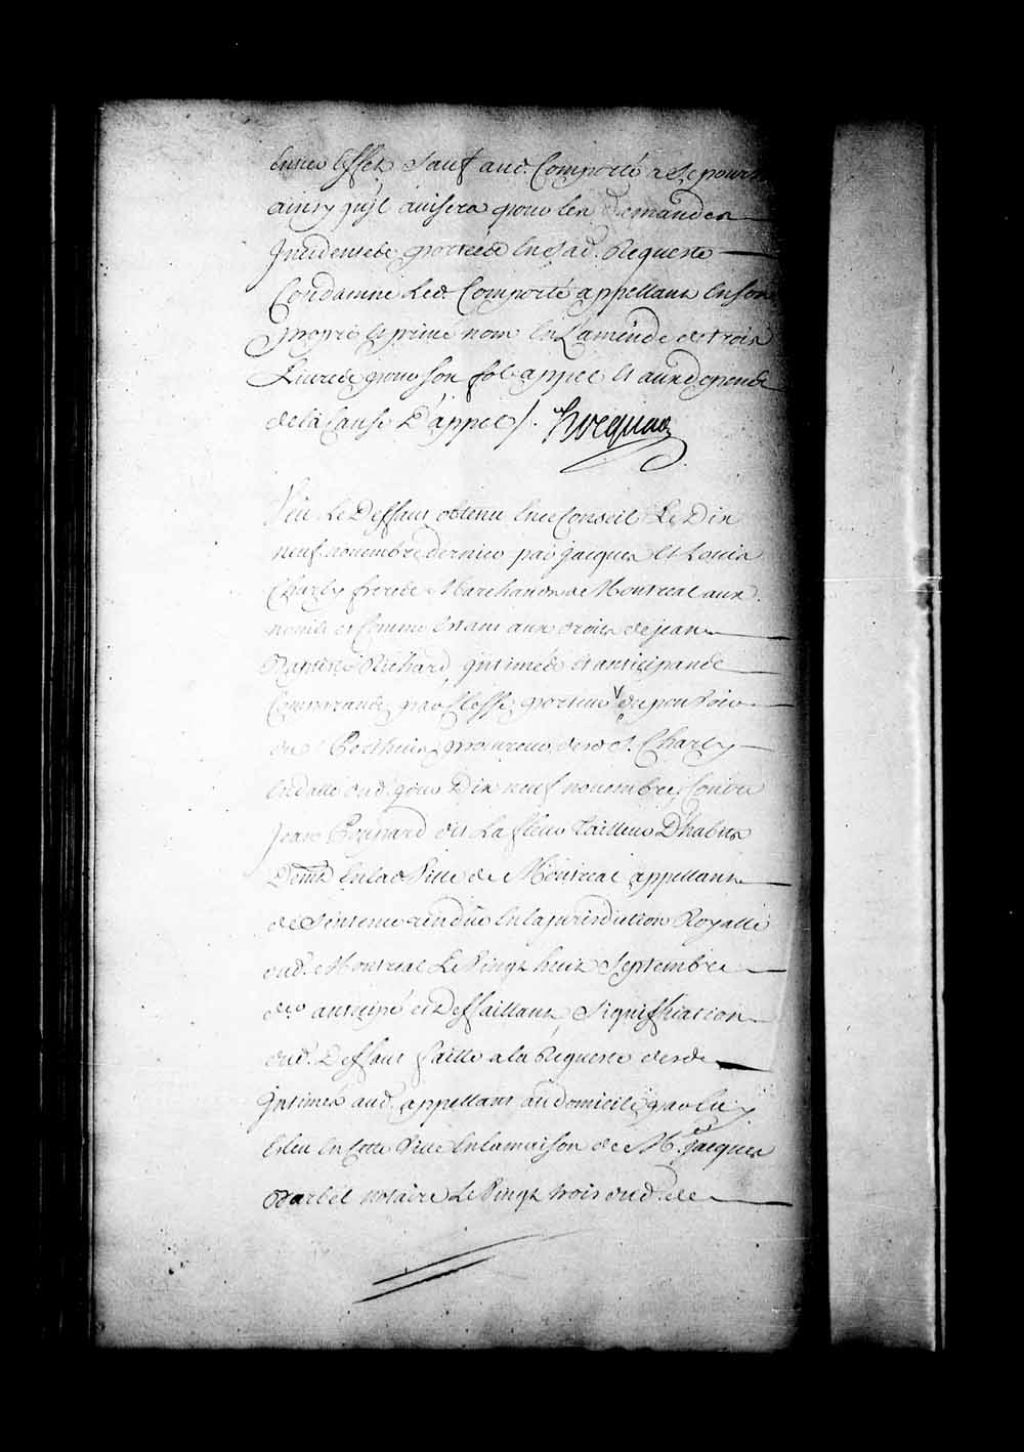 entier effet Sauf aud. Comporté a Se pourvoir
ainsy quil avisera pour les demandes
Incidentes portées En Sad. Requeste
Condamne Led. Comporté appellant En Son
propre et privé nom En Lamende de trois
Livres pour Son fol appel et aux depens
de la Cause D'appel /. Hocquart
Veu Le Deffaut obtenu En ce Conseil Le Dix
neuf novembre dernier par Jacques et Louis
Charly freres Marchands de Montreal aux
noms et Comme Estant aux droits de Jean
Baptiste Richard, Intimés et anticipans
Comparants par porteur de pouvoir
du Sr procureur desd. Srs Charly
En datte dud. jour Dix neuf novembre, Contre
Jean dit La fleur tailleur Dhabits
Demt. En lad. Ville de Montreal appellant
de Sentence rendüe En la jurisdiction Royalle
dud. Montreal Le Vingt huit Septembre
der. anticipé et Deffaillant, Signiffication
dud. Deffaut faitte a la Requeste desd.
Intimés aud. appellant au domicile par luy
Eleu En Cette Ville En la maison de Me. Jacques
Barbel notaire Le Vingt trois dud.